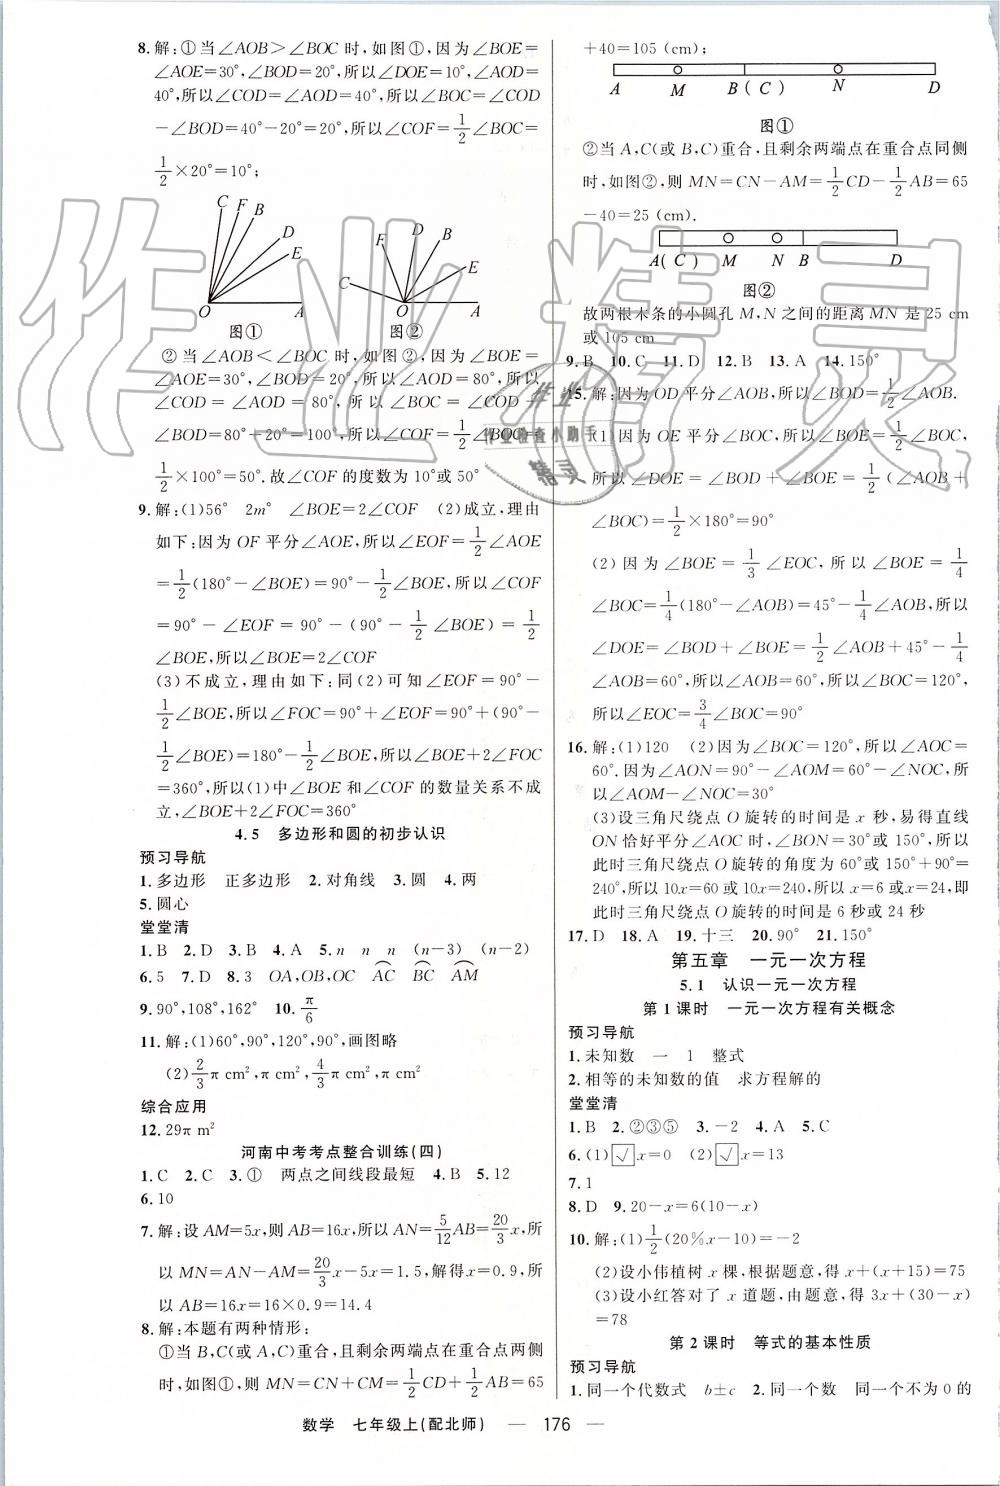 8.解:①当∠AOB>∠BOC时,如图①,因为∠BOE=
∠AOE=30°,∠BOD=20°,所以∠DOE=10°,∠AOD=
40°,所以∠COD=∠AOD=40°,所以∠BOC=∠COD
-∠BOD=40°-20°=20°,所以∠COF=1/2∠BOC=
1/2×20°=10°;
C F B D E O A
图①
F D B E C O A
图②
②当∠AOB<∠BOC时,如图②,因为∠BOE=
∠AOE=30°,∠BOD=20°,所以∠AOD=80°,所以
∠COD=∠AOD=80°,所以∠BOC=∠COD+
∠BOD=80°+20°=100°,所以∠COF=1/2∠BOC=
1/2×100°=50°.故∠COF的度数为10°或50°
9.解:(1)56° 2m° ∠BOE=2∠COF (2)成立,理由
如下:因为OF平分∠AOE,所以∠EOF=1/2∠AOE
=1/2(180°-∠BOE)=90°-1/2∠BOE,所以∠COF
=90°-∠EOF=90°-(90°-1/2∠BOE)=1/2
∠BOE,所以∠BOE=2∠COF
(3)不成立,理由如下:同(2)可知∠EOF=90°-
1/2∠BOE,所以∠FOC=90°+∠EOF=90°+(90°-
1/2∠BOE)=180°-1/2∠BOE,所以∠BOE+2∠FOC=
360°,所以(1)中∠BOE和∠COF的数量关系不成
立,∠BOE+2∠FOC=360°
4.5 多边形和圆的初步认识
预习导航
1.多边形 正多边形 2.对角线 3.圆 4.两
5.圆心
堂堂清
1.B 2.D 3.B 4.A 5.n n n (n-3) (n-2)
6.5 7.D 8.3 OA,OB,OC A͡C B͡C A͡M
9.90°,108°,162° 10.π/6
11.解:(1)60°,90°,120°,90°,画图略
(2)2/3π cm²,π cm²,4/3π cm²,π cm²
综合应用
12.29π m²
河南中考考点整合训练(四)
1.C 2.C 3.① 两点之间线段最短 4.B 5.12
6.10
7.解:设AM=5x,则AB=16x,所以AN=5/12AB=20/3x,所
以MN=AN-AM=20/3x-5x=1.5,解得x=0.9,所
以AB=16x=16×0.9=14.4
8.解:本题有两种情形:
①当B,C(或A,C)重合,且剩余两端点在重合点两侧
时,如图①,则MN=CN+CM=1/2CD+1/2AB=65
+40=105(cm);
A M B(C) N D
图①
②当A,C(或B,C)重合,且剩余两端点在重合点同侧
时,如图②,则MN=CN-AM=1/2CD-1/2AB=65
-40=25(cm).
A(C) M N B D
图②
故两根木条的小圆孔M,N之间的距离MN是25 cm
或105 cm
9.B 10.C 11.D 12.B 13.A 14.150°
15.解:因为OD平分∠AOB,所以∠BOD=1/2∠AOB.
(1)因为OE平分∠BOC,所以∠BOE=1/2∠BOC,
所以∠DOE=∠BOD+∠BOE=1/2(∠AOB+
∠BOC)=1/2×180°=90°
(2)因为∠BOE=1/3∠EOC,所以∠BOE=1/4
∠BOC=1/4(180°-∠AOB)=45°-1/4∠AOB,所以
∠DOE=∠BOD+∠BOE=1/2∠AOB+45°-1/4
∠AOB=60°,所以∠AOB=60°,所以∠BOC=120°,
所以∠EOC=3/4∠BOC=90°
16.解:(1)120 (2)因为∠BOC=120°,所以∠AOC=
60°.因为∠AON=90°-∠AOM=60°-∠NOC,所
以∠AOM-∠NOC=30°
(3)设三角尺绕点O旋转的时间是x秒,易得直线
ON恰好平分∠AOC时,∠BON=30°或150°,所以
此时三角尺绕点O旋转的角度为60°或150°+90°=
240°,所以10x=60或10x=240,所以x=6或x=24,即
此时三角尺绕点O旋转的时间是6秒或24秒
17.D 18.A 19.十三 20.90° 21.150°
第五章 一元一次方程
5.1 认识一元一次方程
第1课时 一元一次方程有关概念
预习导航
1.未知数 一 1 整式
2.相等的未知数的值 求方程解的
堂堂清
1.B 2.②③⑤ 3.-2 4.A 5.C
6.(1)√x=0 (2)√x=13
7.1
8.D 9.20-x=6(10-x)
10.解:(1)1/2(20%x-10)=-2
(2)设小伟植树x棵,根据题意,得x+(x+15)=75
(3)设小红答对了x道题,由题意,得3x+(30-x)
=78
第2课时 等式的基本性质
预习导航
1.同一个代数式 b±c 2.同一个数 同一个不为0的
数学 七年级上(配北师) — 176 —
作业精灵
作业
作业检查小助手
精灵